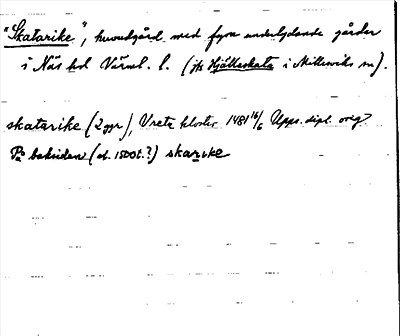 "Skatarike", huvudgård med fyra underlydande gårdar
i Näs hd Värml. l. (jfr Hjälteskata i Millesviks sn).
skatarike (2 ggr), Vreta kloster 1481 16/6 Upps. dipl. orig.
På baksidan (ch. 1500t.?) skarike